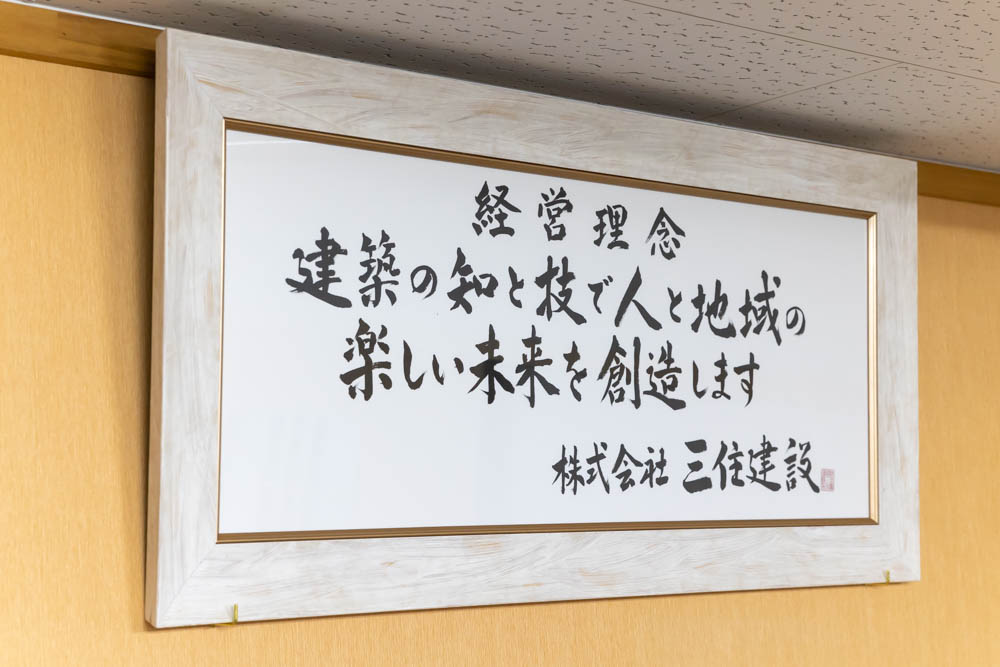 経営理念
建築の知と技で人と地域の
楽しい未来を創造します
株式会社 三住建設